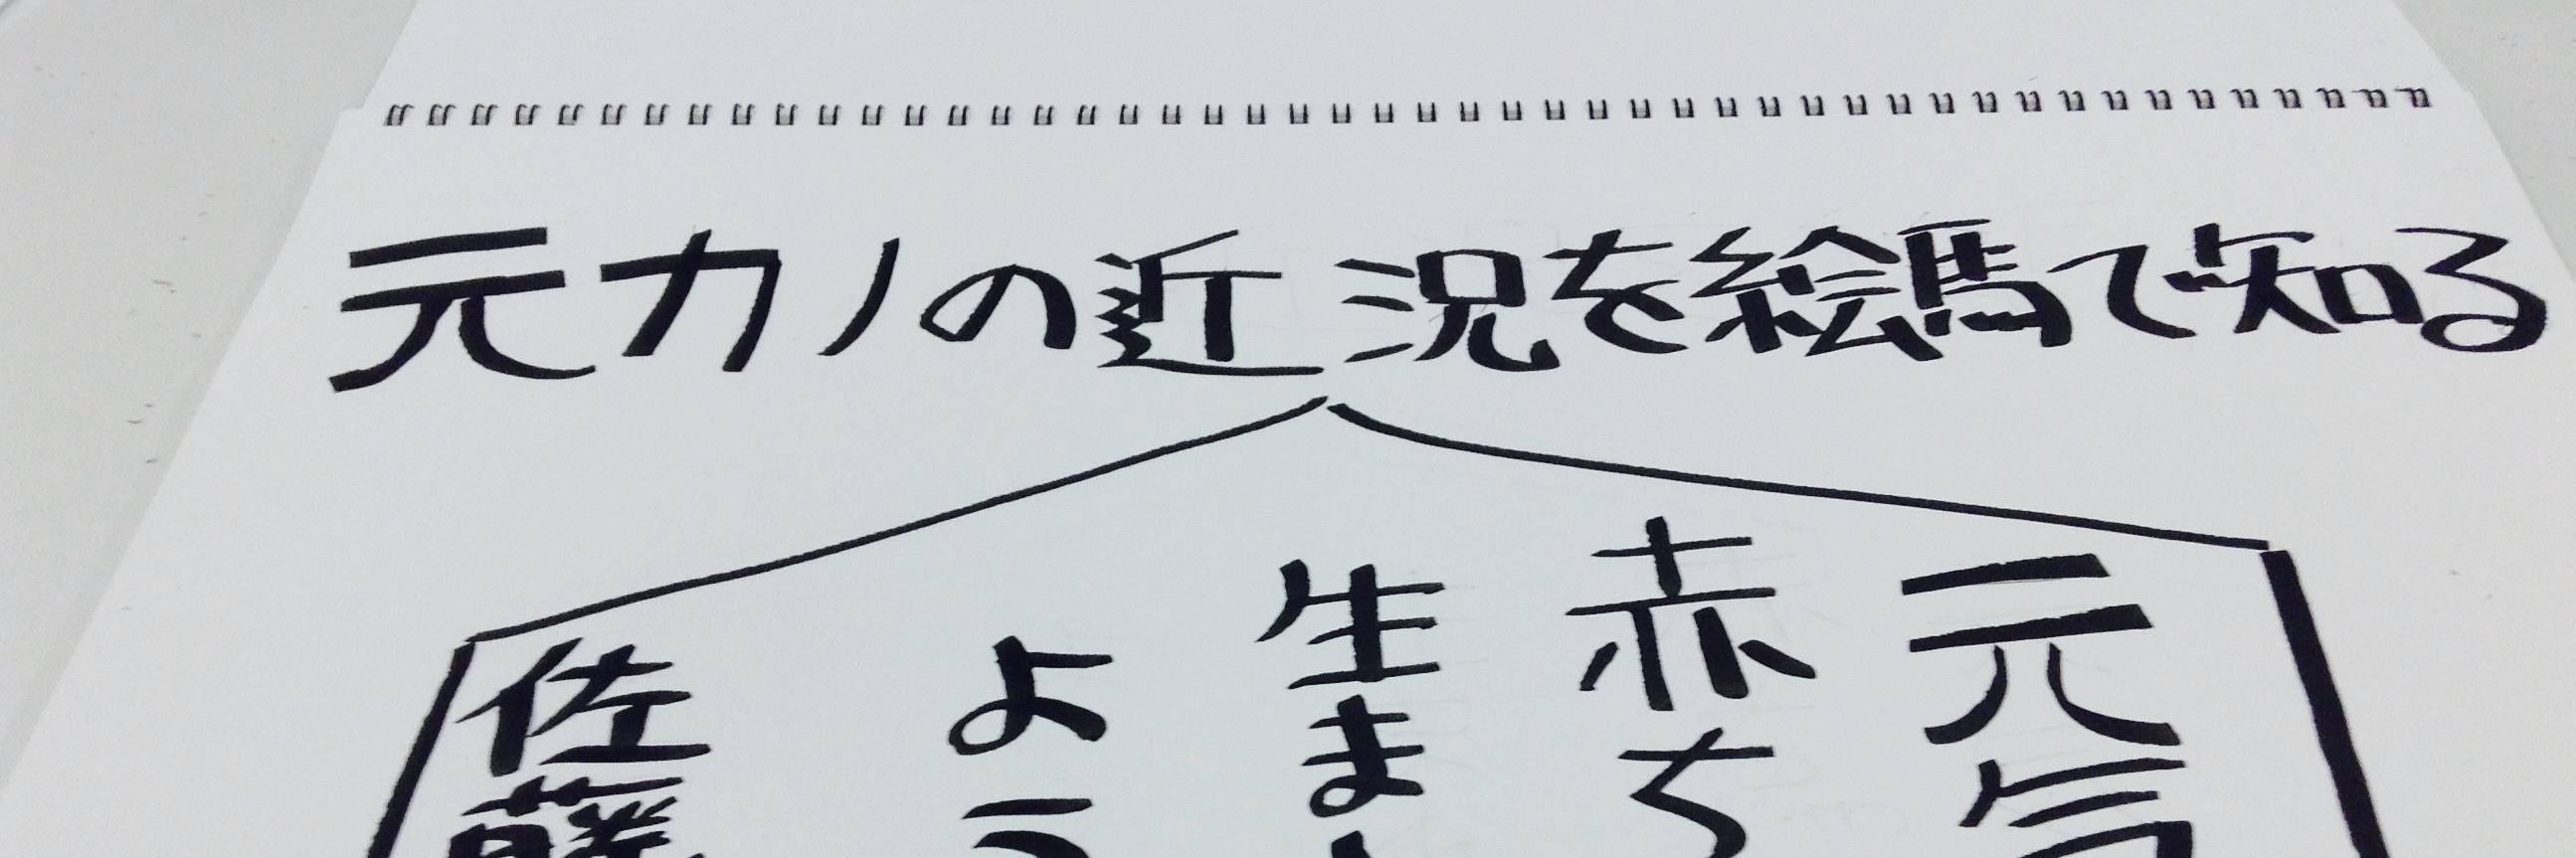 元カノの近況を絵馬で知る
元気
赤ち
生ま
よう
佐藤